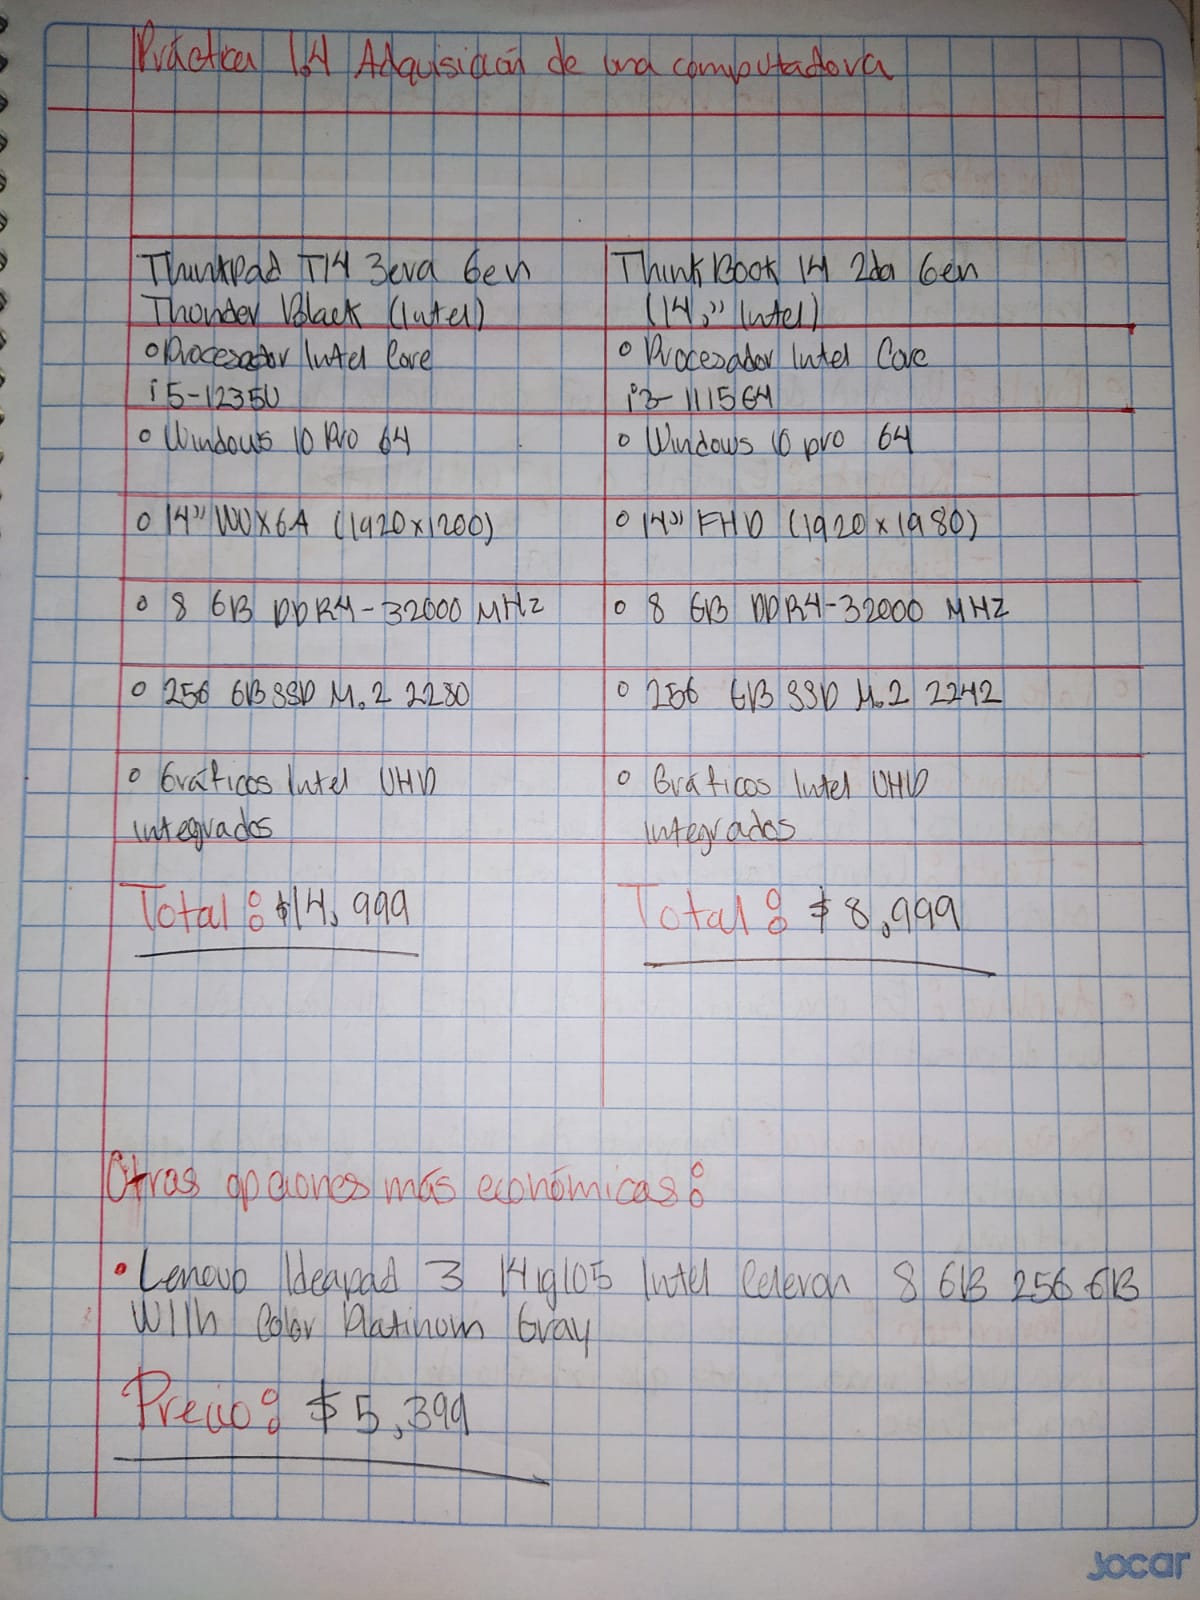 Práctica 1.4 Adquisición de una computadora
ThinkPad T14 3era Gen
Thonder Black (Intel)
ThinkBook 14 2da Gen
(14,” Intel)
○ Procesador Intel Core
i5-1235U
○ Procesador Intel Core
i3-1115G4
○ Windows 10 Pro 64
○ Windows 10 pro 64
○ 14” WUXGA (1920x1200)
○ 14” FHD (1920x1980)
○ 8 GB DDR4-32000 MHz
○ 8 GB DDR4-32000 MHZ
○ 256 GB SSD M.2 2280
○ 256 GB SSD M.2 2242
○ Gráficos Intel UHD
integrados
○ Gráficos Intel UHD
integrados
Total: $14,999
Total: $8,999
Otras opciones más económicas:
• Lenovo Ideapad 3 14IglO5 Intel Celeron 8 GB 256 GB
W11h Color Platinum Gray
Precio: $5,399
Jocar